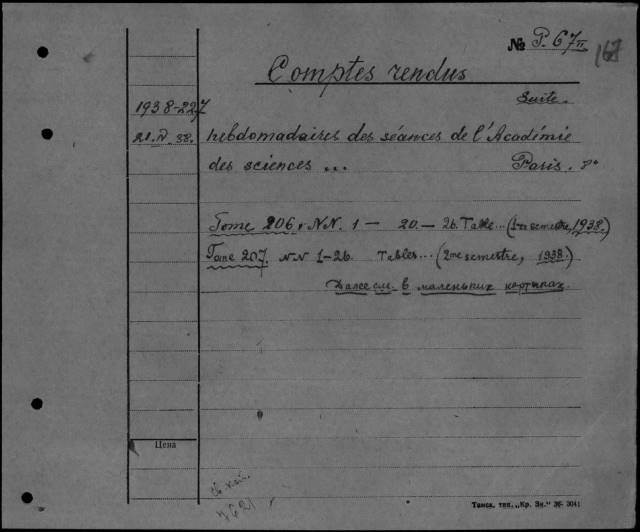 № P. 67II 167
Comptes rendus
Suite.
1938-227
21.IV.38. hebdomadaires des séances de l'Académie
des sciences ... Paris. 8°
Tome 206, NN. 1 — 20. — 26. Table... (1er semestre, 1938.)
Tome 207. NN 1-26. Tables... (2me semestre, 1938.)
Далее см. в маленьких картычах.
Цена
Томск, тип. „Кр. Зн." 36- 3041